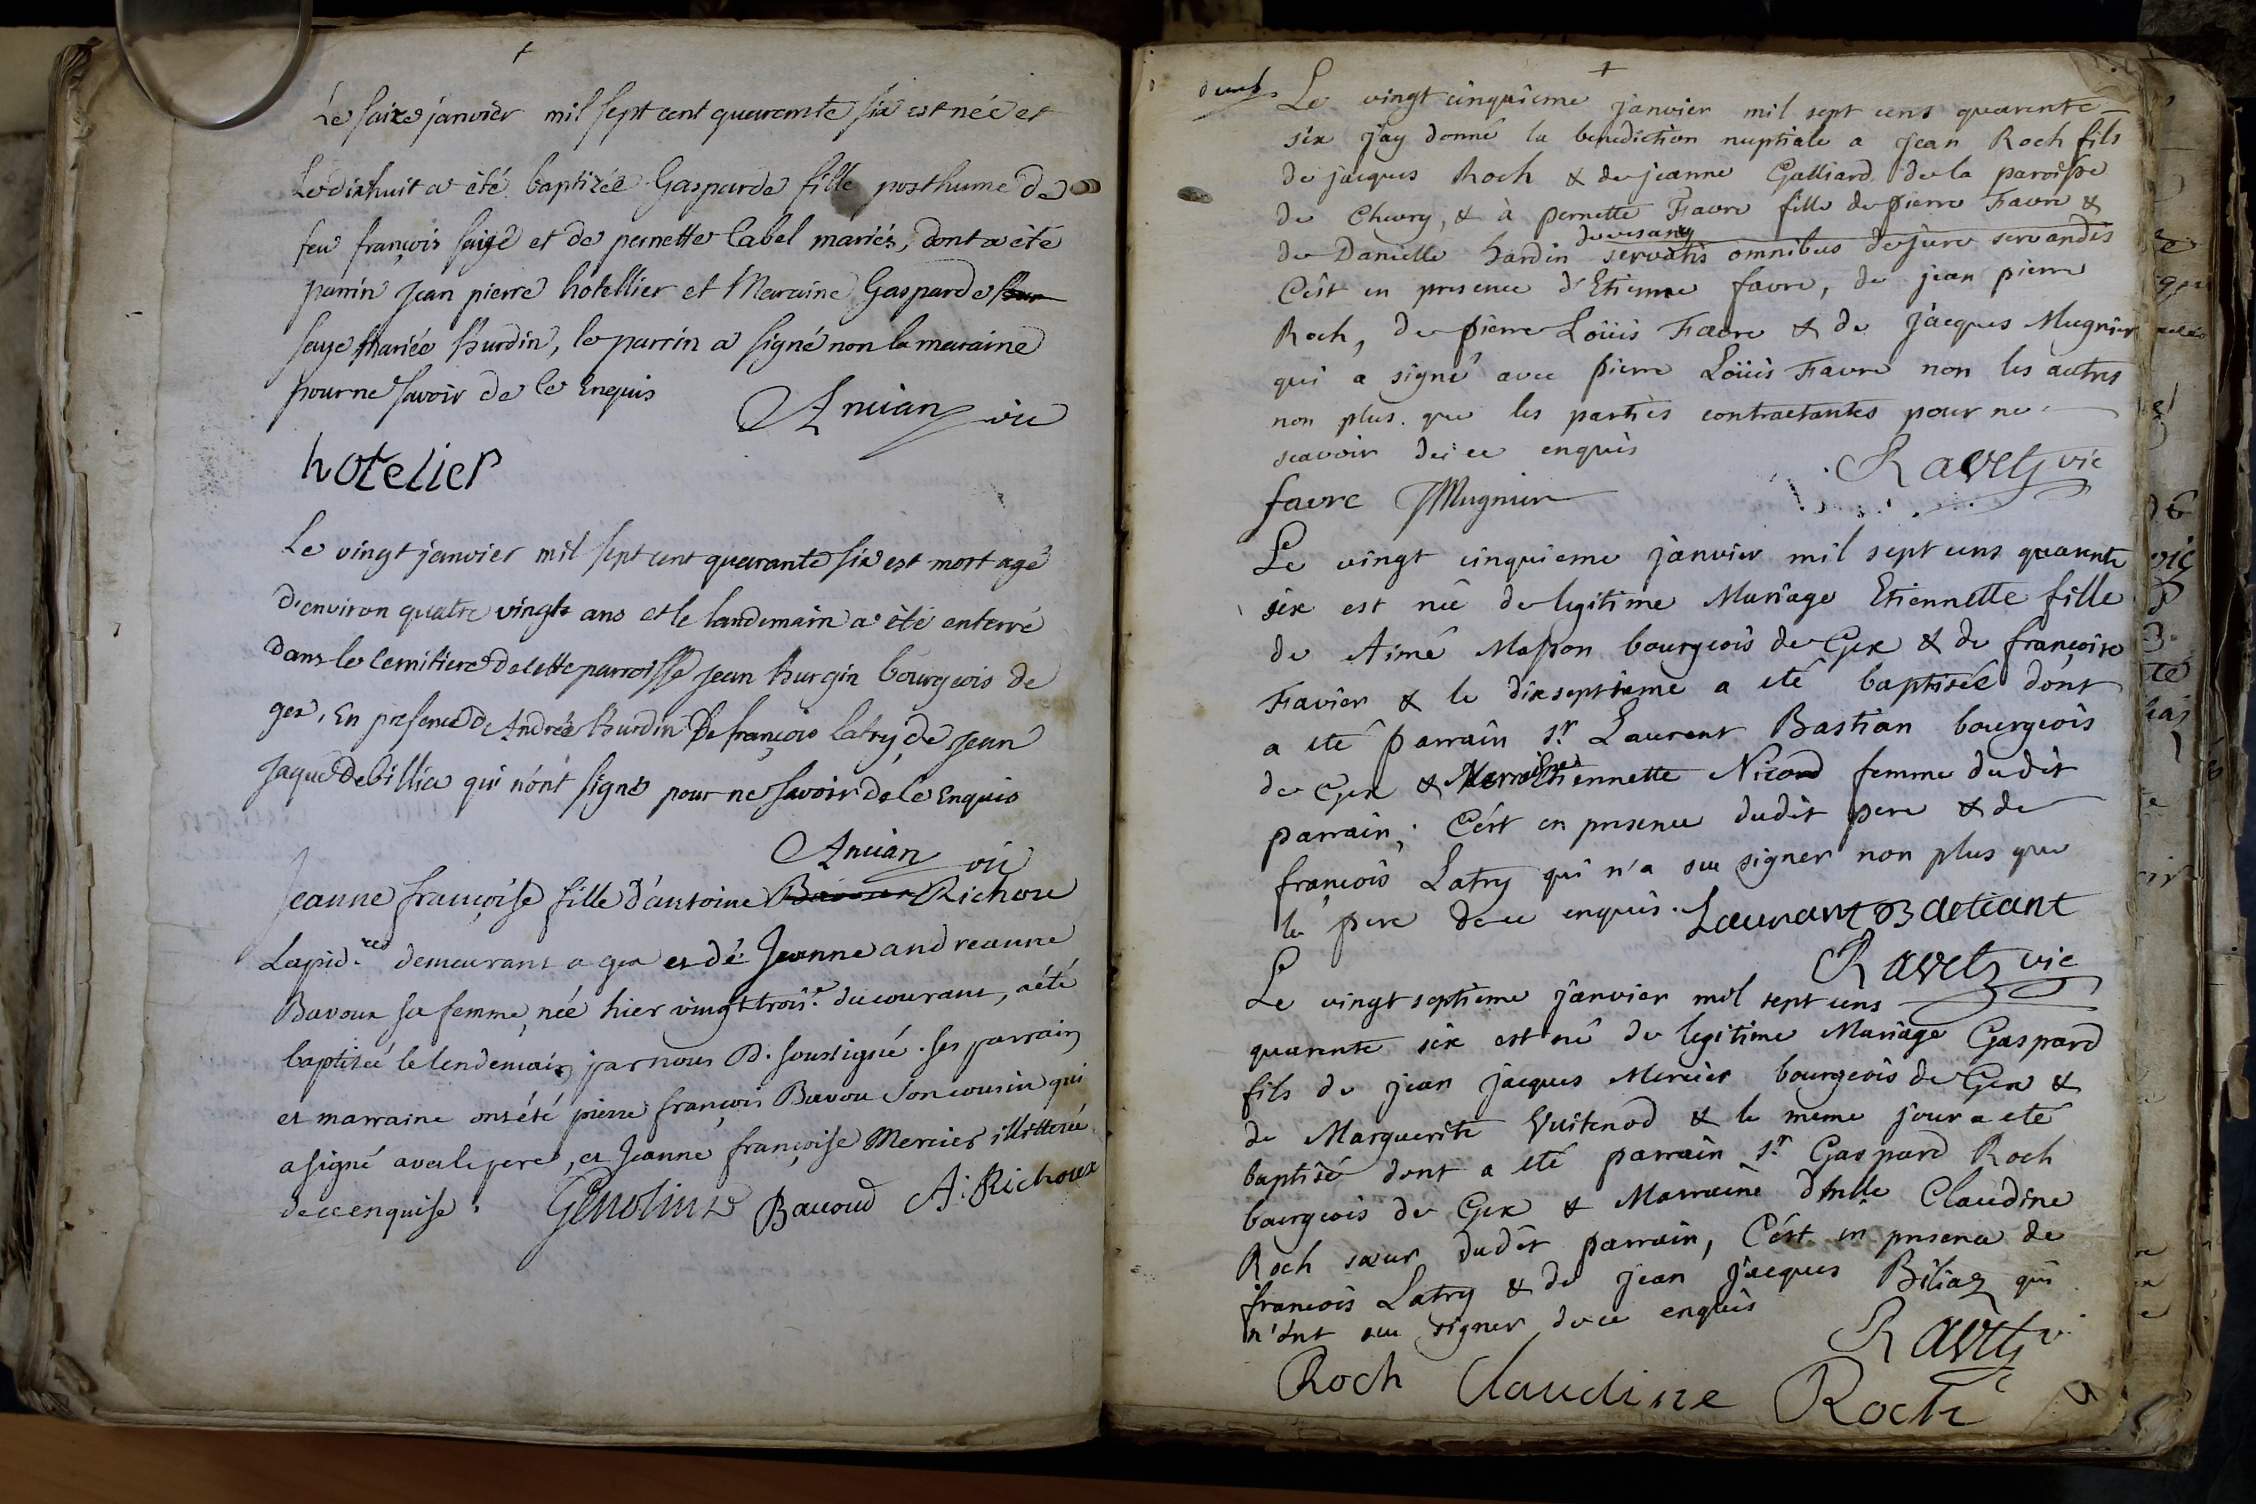 Le saize janvier mil sept cent quarante six est née et
Le dixhuit a été baptizée Gasparde fille posthume de
feu françois saige et de pernette Cabel mariés, dont a été
parrin Jean pierre hotellier et Maraine Gasparde
saye mariée hurdin, le parrin a signé non la maraine
pour ne savoir de ce Enquis
Ancian vic
hotelier
Le vingt janvier mil sept cent quarante six est mort agé
D'environ quatre vingts ans et le landemain a été enterré
Dans le Cemitiere de cette parroisse jean hurgin bourgeois de
gex, En presence De Andréa hurdin De françois Latry, de jean
jaque Debillia qui n'ont signé pour ne savoir de ce Enquis
Ancian vic
Jeanne françoise fille d'antoine Bavoux Richou
Lapid.re demeurant a gex et de Jeanne andreanne
Bavoux sa femme, née hier vingt trois.e du courant, a été
baptisée le lendemain par nous P. soussigné. ses parrain
et marraine ont été pierre françois Bavou son cousin qui
a signé avec le pere, et Jeanne françoise Mercier illitterée
de ce enquise.
Bavoud A: Richoux
Le vingt cinquieme janvier mil sept cens quarente
six jay donné la benediction nuptiale a jean Roch fils
de jacques Roch & de jeanne Galliard de la paroisse
de Chevry, & à pernette Favre fille de pierre Favre &
de Danielle hardin servatis omnibus de jure servandis
C'ést en presence d'Etienne favre, de jean pierre
Roch, de pierre Loüis Favre & de jacques Mugnier
qui a signé avec pierre Loüis Favre non les autres
non plus que les parties contractantes pour ne
scavoir de ce enquis
Ravetz vic
favre JMugnier
Le vingt cinquieme janvier mil sept cens quarente
six est née de legitime Mariage Etiennette fille
de Aimé Masson bourgeois de Gex & de françoise
Favier & le dixseptieme a eté baptisée dont
a eté parrain s.r Laurent Bastian bourgeois
de Gex & Marraine Etiennette Nicod femme dudit
parrain; C'ést en presence dudit pere & de
françois Latry qui n'a sçu signer non plus que
le pere de ce enquis.
Laurant Bastiant
Ravetz vic
Le vingt septieme janvier mil sept cens
quarente six est né de legitime Mariage Gaspard
fils de jean jacques Mercier bourgeois de Gex &
de Marguerite Vuitenod & le meme jour a eté
baptisé dont a eté parrain s.r Gaspard Roch
bourgeois de Gex & Marraine dmlle Claudine
Roch sœur dudit parrain, C'ést en presence de
francois Latry & de jean jacques Biliaz qui
n'ont sçu signer de ce enquis
Ravetz v
Roch Claudine Roch